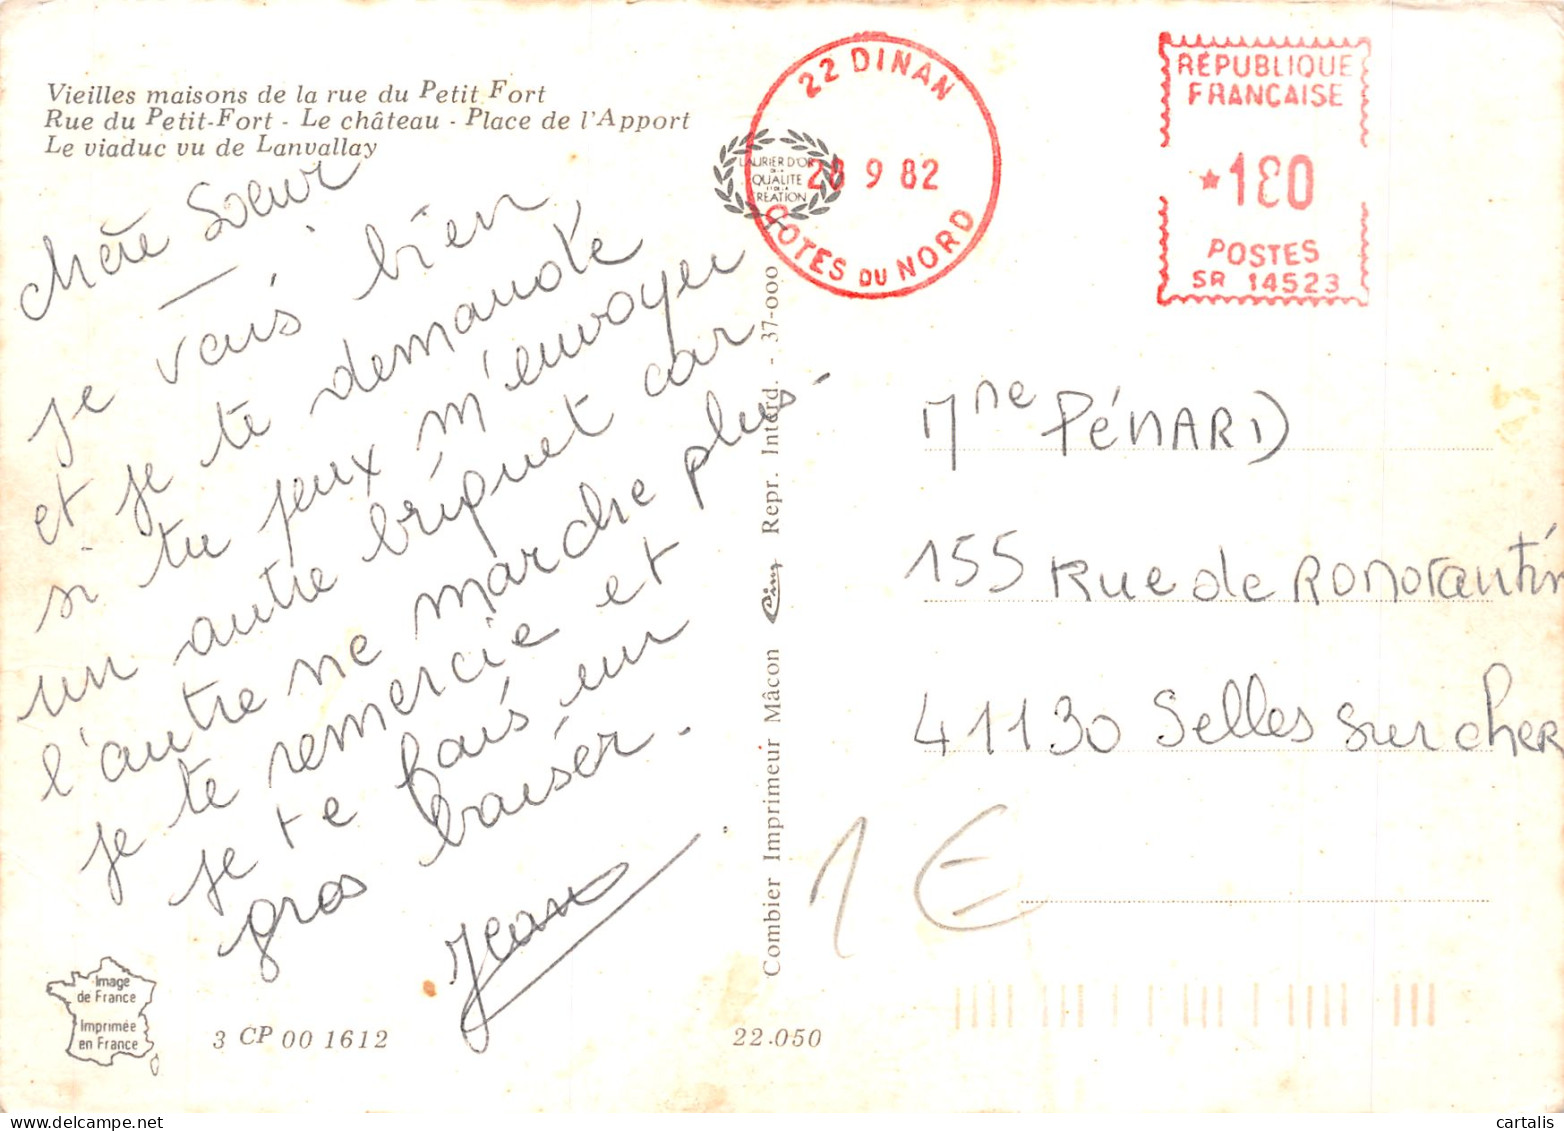 Vieilles maisons de la rue du Petit Fort
Rue du Petit-Fort - Le château - Place de l'Apport
Le viaduc vu de Lanvallay
chère Soeur
je vais bien
et je te demande
si tu peux m'envoyer
un autre briquet car
l'autre ne marche plus.
je te remercie et
je te fais un
gros baiser.
Jean
Image
de France
Imprimée
en France
3 CP 00 1612
22.050
Combier Imprimeur Mâcon Cim Repr. Interd. - 37-000
LAURIER D'OR
DE LA
QUALITE
ET DE LA
CREATION
22 DINAN
28 9 82
COTES DU NORD
RÉPUBLIQUE
FRANÇAISE
*180
POSTES
SR 14523
Mme PÉNARD
155 Rue de Romorantin
41130 Selles sur cher
1 €
cartalis